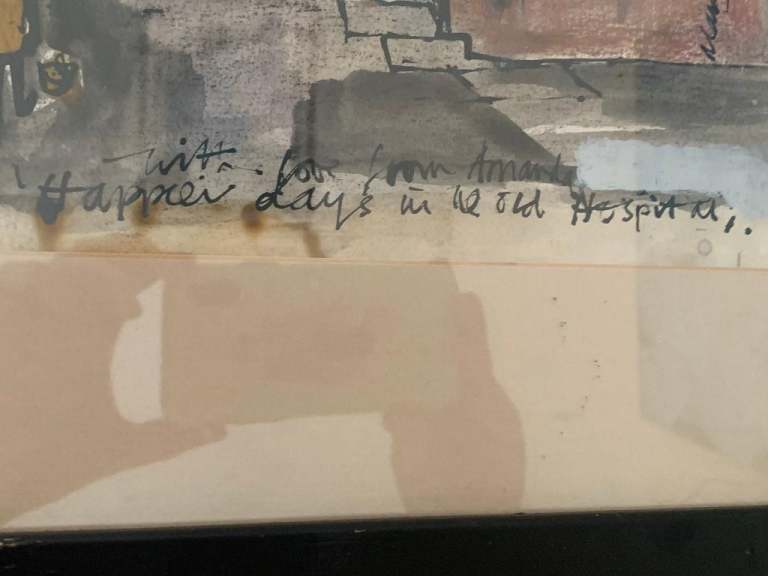 with love from Amanda
'Happier days in the old Hospital,.